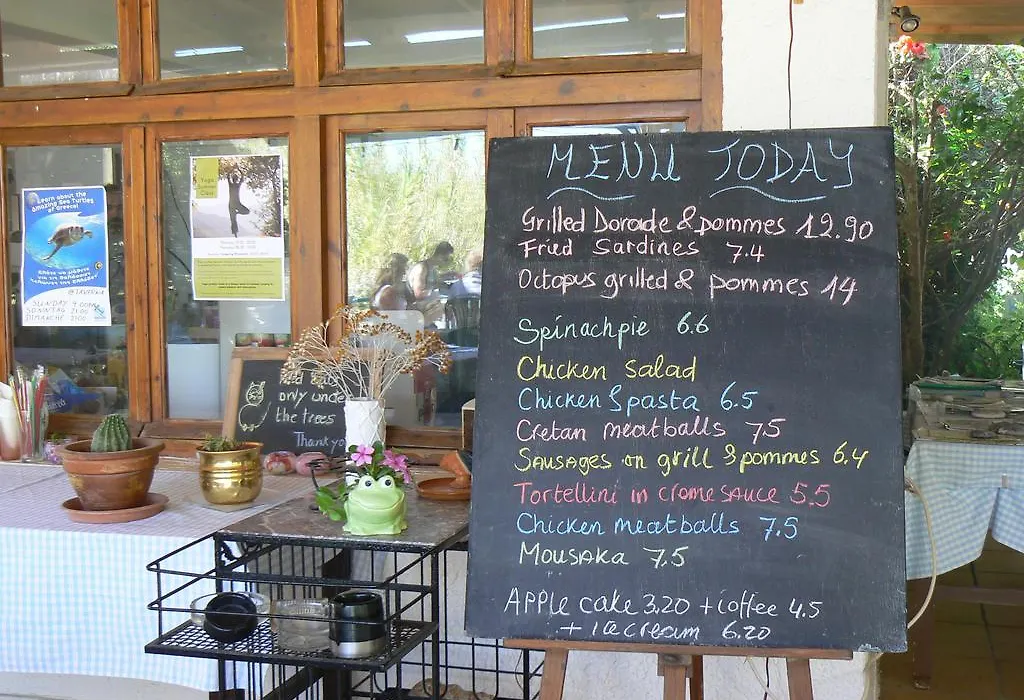 Learn about the
Amazing Sea Turtles
of Greece!
@TAVERNA
SUNDAY 9.00PM
SONNTAG 21.00
DIMANCHE 21.00
Yoga
only under
the trees
Thank you
MENU TODAY
Grilled Dorade & pommes 12.90
Fried Sardines 7.4
Octopus grilled & pommes 14
Spinachpie 6.6
Chicken salad
Chicken & pasta 6.5
Cretan meatballs 75
Sausages on grill & pommes 6,4
Tortellini in cromesauce 5.5
Chicken meatballs 7.5
MOUSAKA 7.5
APPle cake 3.20 + coffee 4.5
+ Icecream 6.20